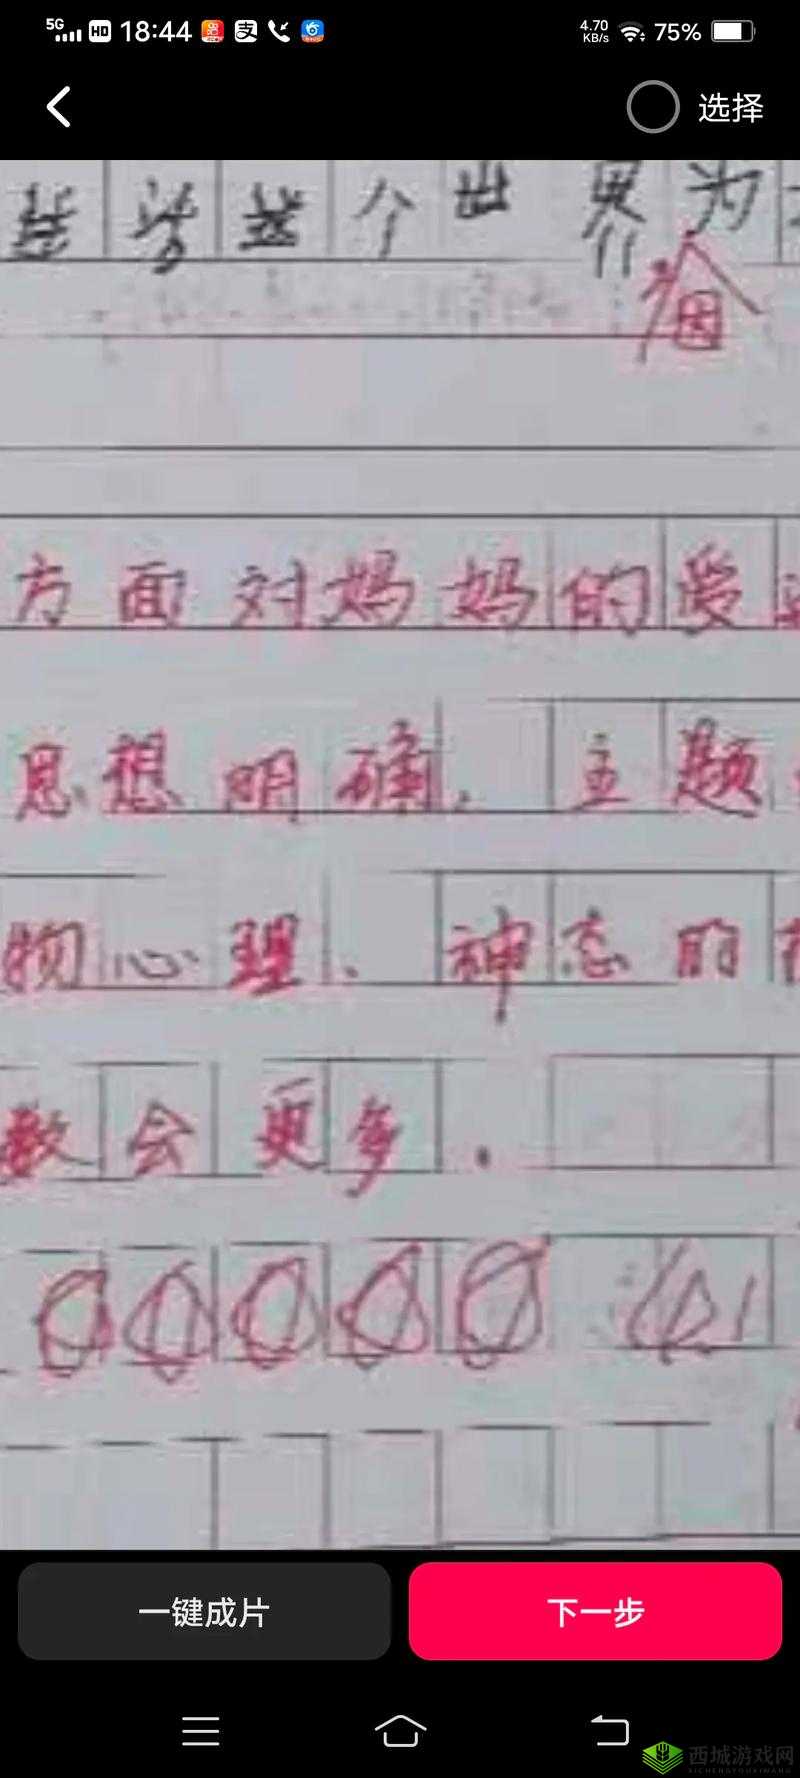 5G HD 18:44 4.70 KB/s 75%
选择
这个世界为
因
方面对妈妈的爱
思想明确.主题
物心理、神态的
数会更多.
一键成片
下一步
西城游戏网
XICHENGYOUXIWANG